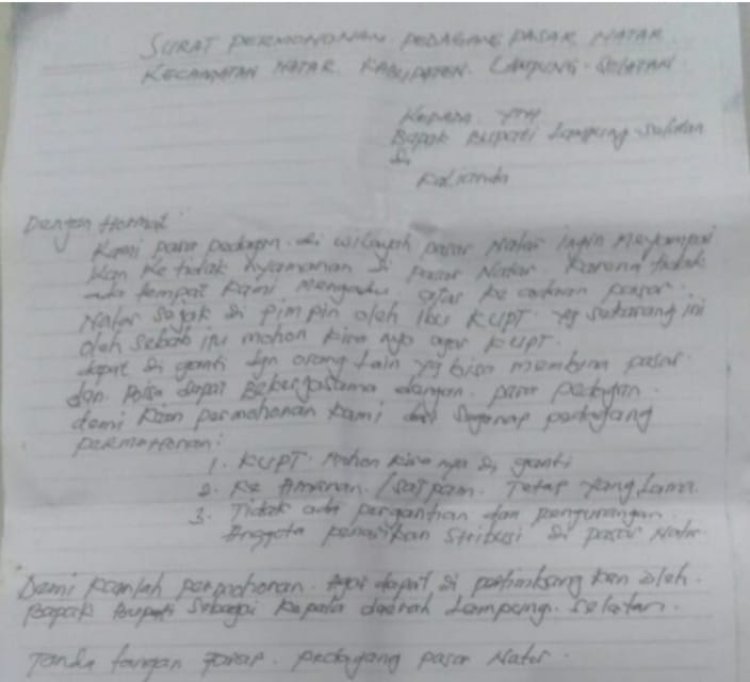 SURAT PERMOHONAN PEDAGANG PASAR NATAR
KECAMATAN NATAR KABUPATEN. LAMPUNG-SELATAN
Kepada YTH
Bapak Bupati Lampung-Selatan
di
Kalianda
Dengan Hormat
Kami para pedagan. di wilayah pasar Natar ingin Meyampai
kan Ke tidak nyamanan di pasar Natar Karena tidak
ada tempat kami mengadu atas ke adaan pasar.
Natar Sejak di pimpin oleh Ibu KUPT. yg sekarang ini
oleh sebab itu mohon kira nya agar KUPT.
dapat di ganti dgn orang lain yg bisa membina pasar
dan Bisa dapat Bekerjasama dangan. para pedagan.
demi kian permohonan kami dari Segenap pedagang
permohonan:
1. KUPT. Mohon kira nya di ganti
2. Ke Amanan /satpam. Tetap yang Lama.
3. Tidak ada pergantian dan pengurangan.
Anggota penarikan Stribusi di pasar Natar.
Demi kianlah permohonan. Agar dapat di pertimbang kan oleh.
Bapak Bupati Sebagai Kepala daerah Lampung. Selatan.
Tanda tangan pedagang pasar Natar.